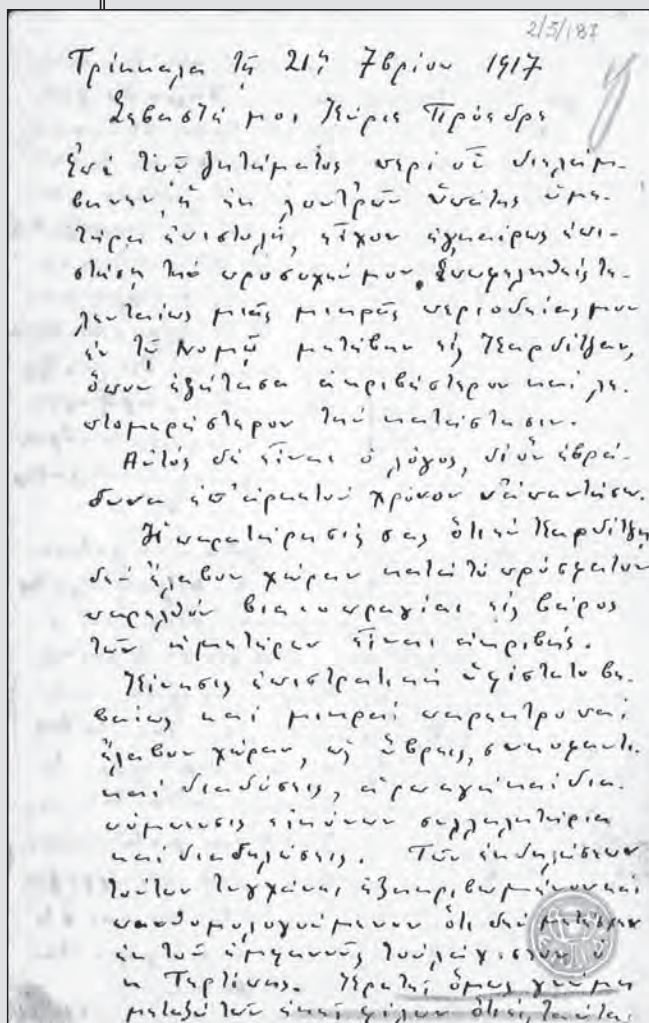 2/5/187
Τρίκκαλα τῇ 21ῃ 7βρίου 1917
Σεβαστέ μοι Κύριε Πρόεδρε
Ἐπί τοῦ ζητήματος περί οὗ διελάμ-
βανεν ἡ ἐκ λουτρῶν Ὑπάτης ὑμε-
τέρα ἐπιστολή, εἶχον ἐγκαίρως ἐπι-
στήσῃ τήν προσοχήν μου. Ἐπωφεληθείς τε-
λευταίως μιᾶς μικρᾶς περιοδείας μου
ἐν τῷ Νομῷ μετέβην εἰς Καρδίτσαν,
ὅπου ἐξήτασα ἀκριβέστερον καί λε-
πτομερέστερον τήν κατάστασιν.
Αὐτός δέ εἶναι ὁ λόγος, δι' ὅν ἐβρά-
δυνα ἐπ' ἀρκετόν χρόνον νά ἀπαντήσω.
Ἡ παρατήρησίς σας ὅτι ἐν Καρδίτσῃ
δέν ἔλαβον χώραν κατά τό πρόσφατον
παρελθόν βιαιοπραγίαι εἰς βάρος
τῶν ἡμετέρων εἶναι ἀκριβής.
Κίνησις ἐπιστρατική ὑφίστατο βε-
βαίως καί μικραί παρεκτροπαί
ἔλαβον χώραν, ὡς ὕβρεις, συκοφαντι-
καί διαδόσεις, ἁρπαγή καί δια-
πόμπευσις εἰκόνων συλλαλητήρια
καί διαδηλώσεις. Τῶν ἐκδηλώσεων
τούτων τυγχάνει ἐξηκριβωμένον καί
πανθομολογούμενον ὅτι δέν μετέσχεν
ἐκ τοῦ ἐμφανοῦς τοὐλάχιστον ὁ
κ Τερτίπης. Κρατεῖ ὅμως γνώμη
μεταξύ τῶν ἐκεῖ φίλων ὅτι εἰς ταύτας